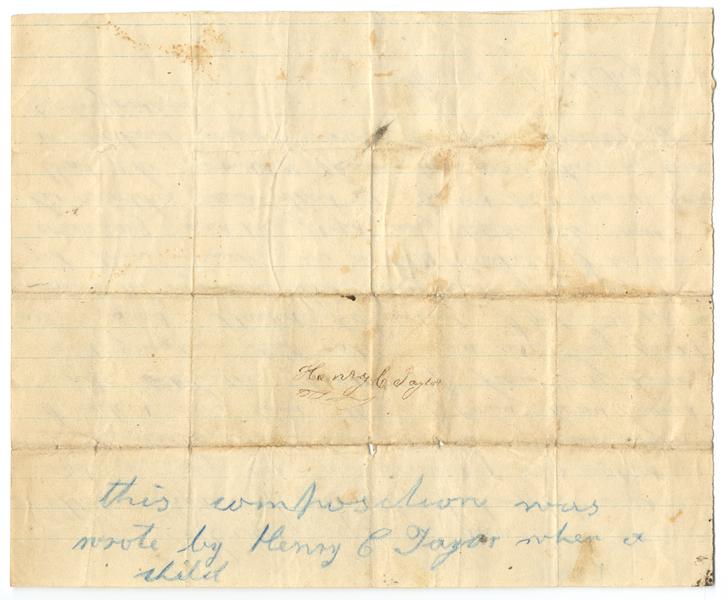 Henry C Taylor
this composition was
wrote by Henry C Taylor when a
child